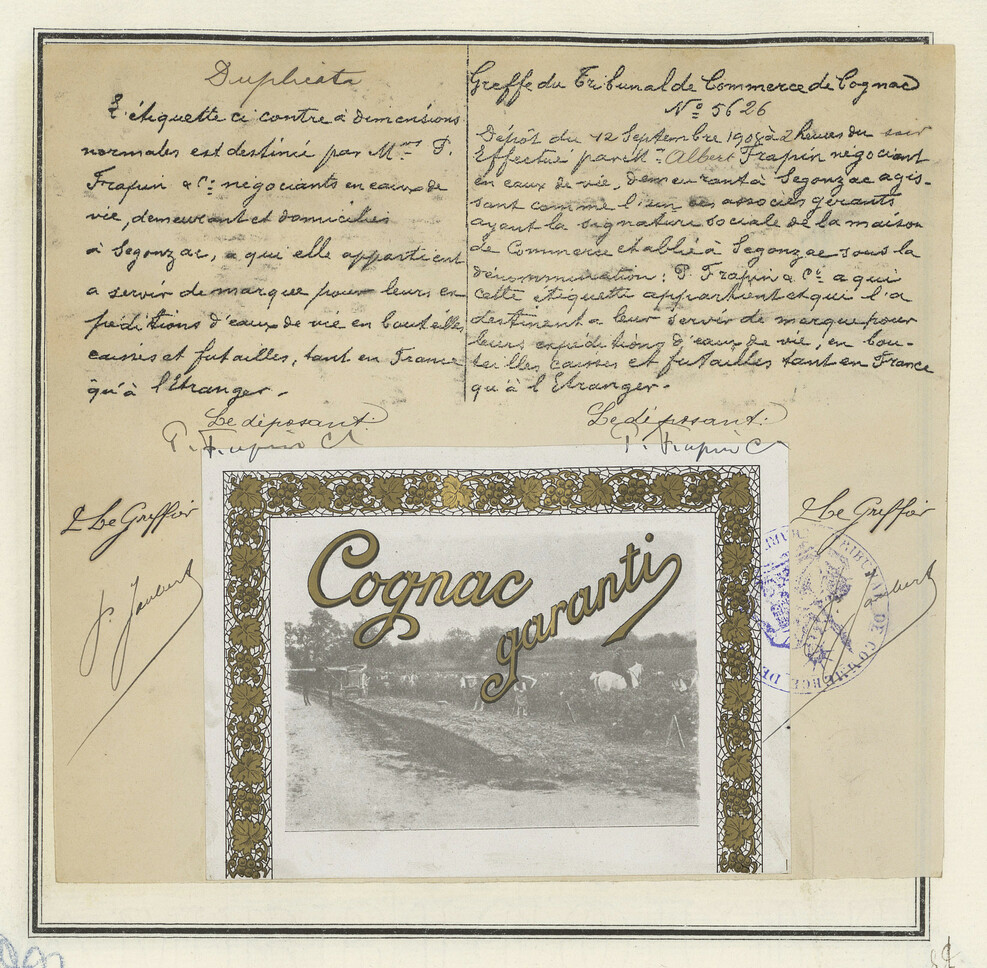 Duplicata
L'étiquette ci contre à dimensions
normales est destinée par M.rs P.
Frapin & Cie négociants en eaux de
vie, demeurant et domiciliés
à Segonzac, a qui elle appartient
a servir de marque pour leurs ex
péditions d'eaux de vie en bouteilles
caisses et futailles, tant en France
qu'à l'Etranger.
Le déposant:
P. Frapin Co
P Le Greffier
P. Joubert
Greffe du Tribunal de Commerce de Cognac
No 5626
Dépôt du 12 Septembre 1908 à 2 heures du soir
Effectué par M.r Albert Frapin négociant
en eaux de vie, demeurant à Segonzac agis-
sant comme l'un des associés gérants
ayant la signature sociale de la maison
de Commerce etablie à Segonzac sous la
dénommination: P. Frapin & Cie a qui
cette étiquette appartient et qui l'a
destinent a leur servir de marque pour
leurs expéditions d'eaux de vie, en bou-
teilles caisses et futailles tant en France
qu'à l'Etranger.
Le déposant:
P. Frapin Co
P Le Greffier
Joubert
Cognac
garanti
TRIBUNAL DE COMMERCE DE